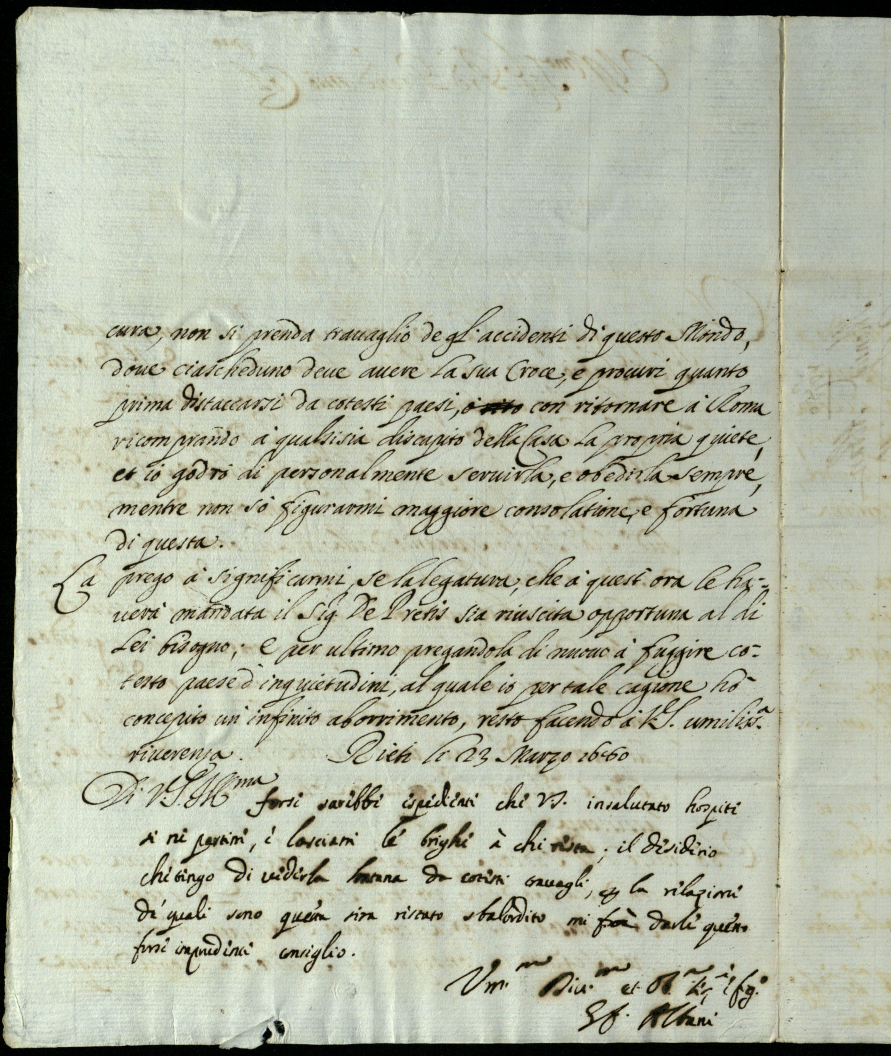 cura, non si prenda travaglio de gl'accidenti di questo Mondo,
dove ciascheduno deve avere la sua Croce, e procuri quanto
prima distaccarsi da cotesti paesi, con ritornare à Roma
ricomprando à qualsisia discapito della Casa la propria quiete,
et io godrò di personalmente servirla, e obedirla sempre,
mentre non sò figurarmi maggiore consolatione, e fortuna
di questa.
La prego à significarmi, se la legatura, che à quest'ora le ha-
verà mandata il Sig. De Pretis sia riuscita opportuna al di
Lei bisogno; e per ultimo pregandola di nuovo à fuggire co-
testo paese d'inquietudini, al quale io per tale cagione hò
concepito un'infinito aborrimento, resto facendo à V.S. umiliss.a
riverenza. Rieti li 23 Marzo 1660
Di V.S. Ill.ma forsi saribbi ispidienti chi VS. insalutato hospiti
si ni partissi, i lasciassi le brighi à chi resta; il disidirio
chi tingo di vidirla lontana da cotisti travagli, et la rilazioni
da quali sono questa sira ristato sbalordito mi fà darli quisto
forsi imprudinti consiglio.
Um.mo Div.mo et Ob.mo
Albani